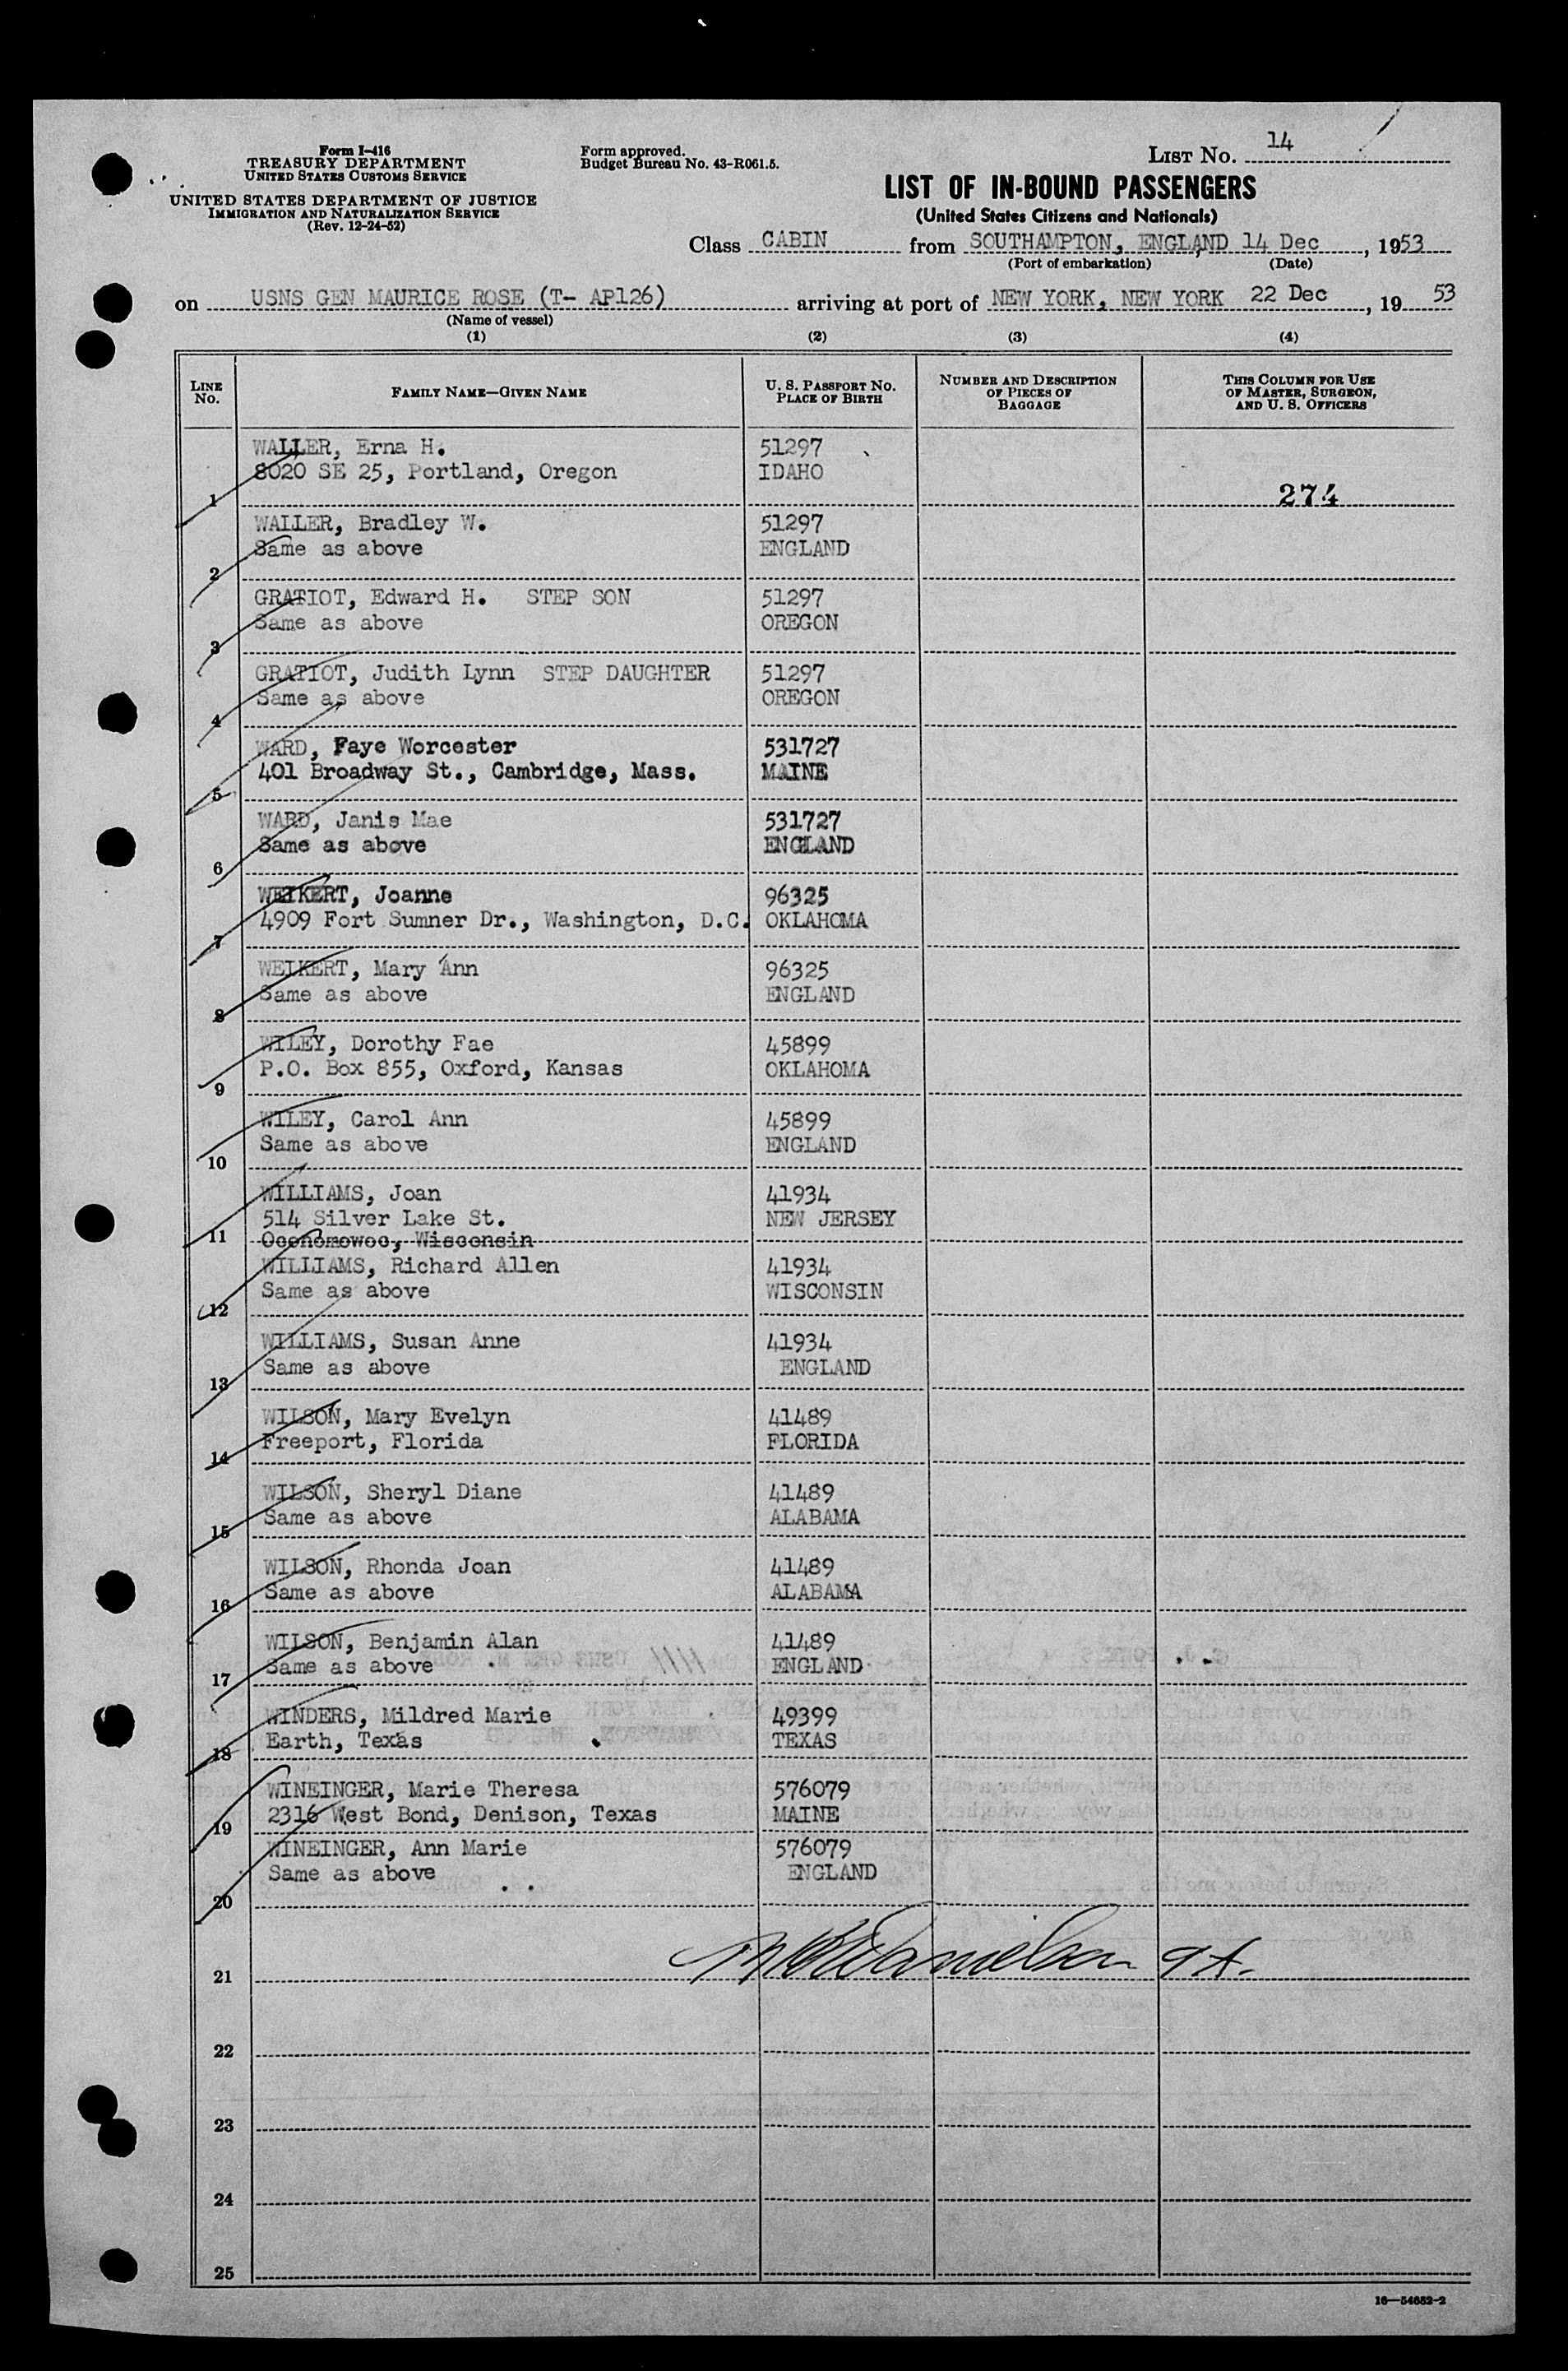 Form I-416
TREASURY DEPARTMENT
UNITED STATES CUSTOMS SERVICE
UNITED STATES DEPARTMENT OF JUSTICE
IMMIGRATION AND NATURALIZATION SERVICE
(Rev. 12-24-52)
Form approved.
Budget Bureau No. 43-R061.5.
LIST NO. 14
LIST OF IN-BOUND PASSENGERS
(United States Citizens and Nationals)
Class CABIN from SOUTHAMPTON, ENGLAND 14 Dec, 1953
(Port of embarkation) (Date)
on USNS GEN MAURICE ROSE (T- AP126) arriving at port of NEW YORK, NEW YORK 22 Dec, 19 53
(Name of vessel)
(1) (2) (3) (4)
LINE NO. FAMILY NAME—GIVEN NAME U. S. PASSPORT NO. PLACE OF BIRTH NUMBER AND DESCRIPTION OF PIECES OF BAGGAGE THIS COLUMN FOR USE OF MASTER, SURGEON, AND U. S. OFFICERS
WALLER, Erna H. 51297
8020 SE 25, Portland, Oregon IDAHO
1 274
WALLER, Bradley W. 51297
Same as above ENGLAND
2
GRATIOT, Edward H. STEP SON 51297
Same as above OREGON
3
GRATIOT, Judith Lynn STEP DAUGHTER 51297
Same as above OREGON
4
WARD, Faye Worcester 531727
401 Broadway St., Cambridge, Mass. MAINE
5
WARD, Janis Mae 531727
Same as above ENGLAND
6
WEIKERT, Joanne 96325
4909 Fort Sumner Dr., Washington, D.C. OKLAHOMA
7
WEIKERT, Mary Ann 96325
Same as above ENGLAND
8
WILEY, Dorothy Fae 45899
P.O. Box 855, Oxford, Kansas OKLAHOMA
9
WILEY, Carol Ann 45899
Same as above ENGLAND
10
WILLIAMS, Joan 41934
514 Silver Lake St. NEW JERSEY
11 Oconomowoc, Wisconsin
WILLIAMS, Richard Allen 41934
Same as above WISCONSIN
12
WILLIAMS, Susan Anne 41934
Same as above ENGLAND
13
WILSON, Mary Evelyn 41489
Freeport, Florida FLORIDA
14
WILSON, Sheryl Diane 41489
Same as above ALABAMA
15
WILSON, Rhonda Joan 41489
Same as above ALABAMA
16
WILSON, Benjamin Alan 41489
Same as above ENGLAND
17
WINDERS, Mildred Marie 49399
Earth, Texas TEXAS
18
WINEINGER, Marie Theresa 576079
2316 West Bond, Denison, Texas MAINE
19
WINEINGER, Ann Marie 576079
Same as above ENGLAND
20
21
22
23
24
25
16—54652-2